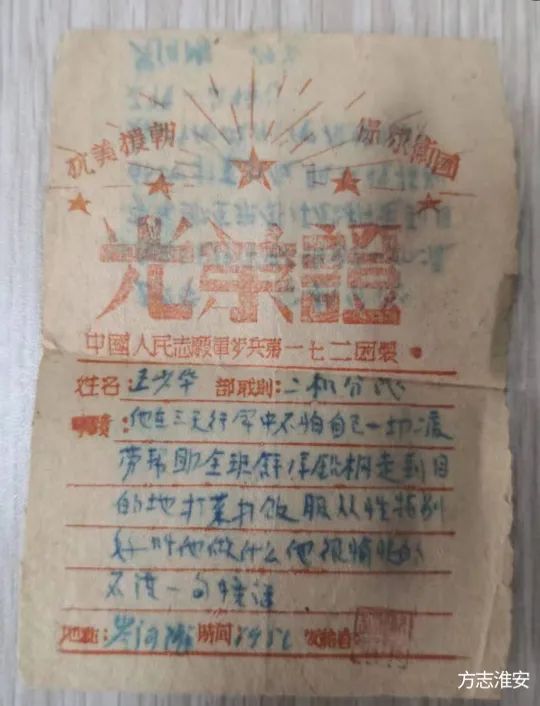 抗美援朝 保家衛國
光荣證
中國人民志願軍步兵第一七二团製
姓名:王少华 部职别:二机分队
事蹟:他在三天行军中不怕自己一切疲
劳帮助全班背洋鎬桐走到目
的地打菜打饭服从性特别
好叫他做什么他很愉快的
不讲一句怪话
地點: 時间:1951 发给者:
方志淮安